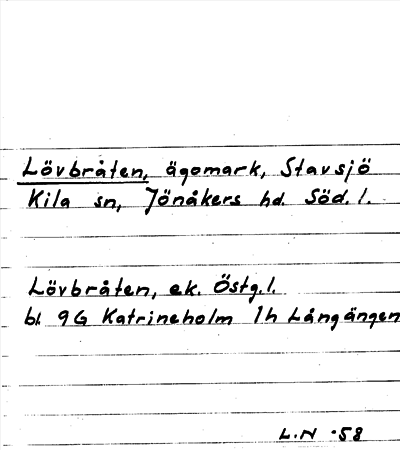 Lövbråten, ägomark, Stavsjö
Kila sn, Jönåkers hd. Söd. l.
Lövbråten, ek. Östg. l.
bl. 9G Katrineholm 1h Långängen
L.N -58